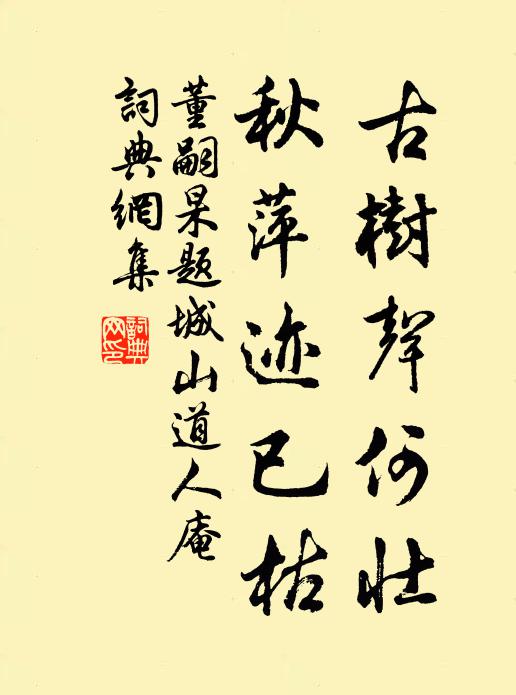 古樹聲何壯
秋萍迹已枯
董嗣杲題城山道人庵
詞典網集
詞典
网印